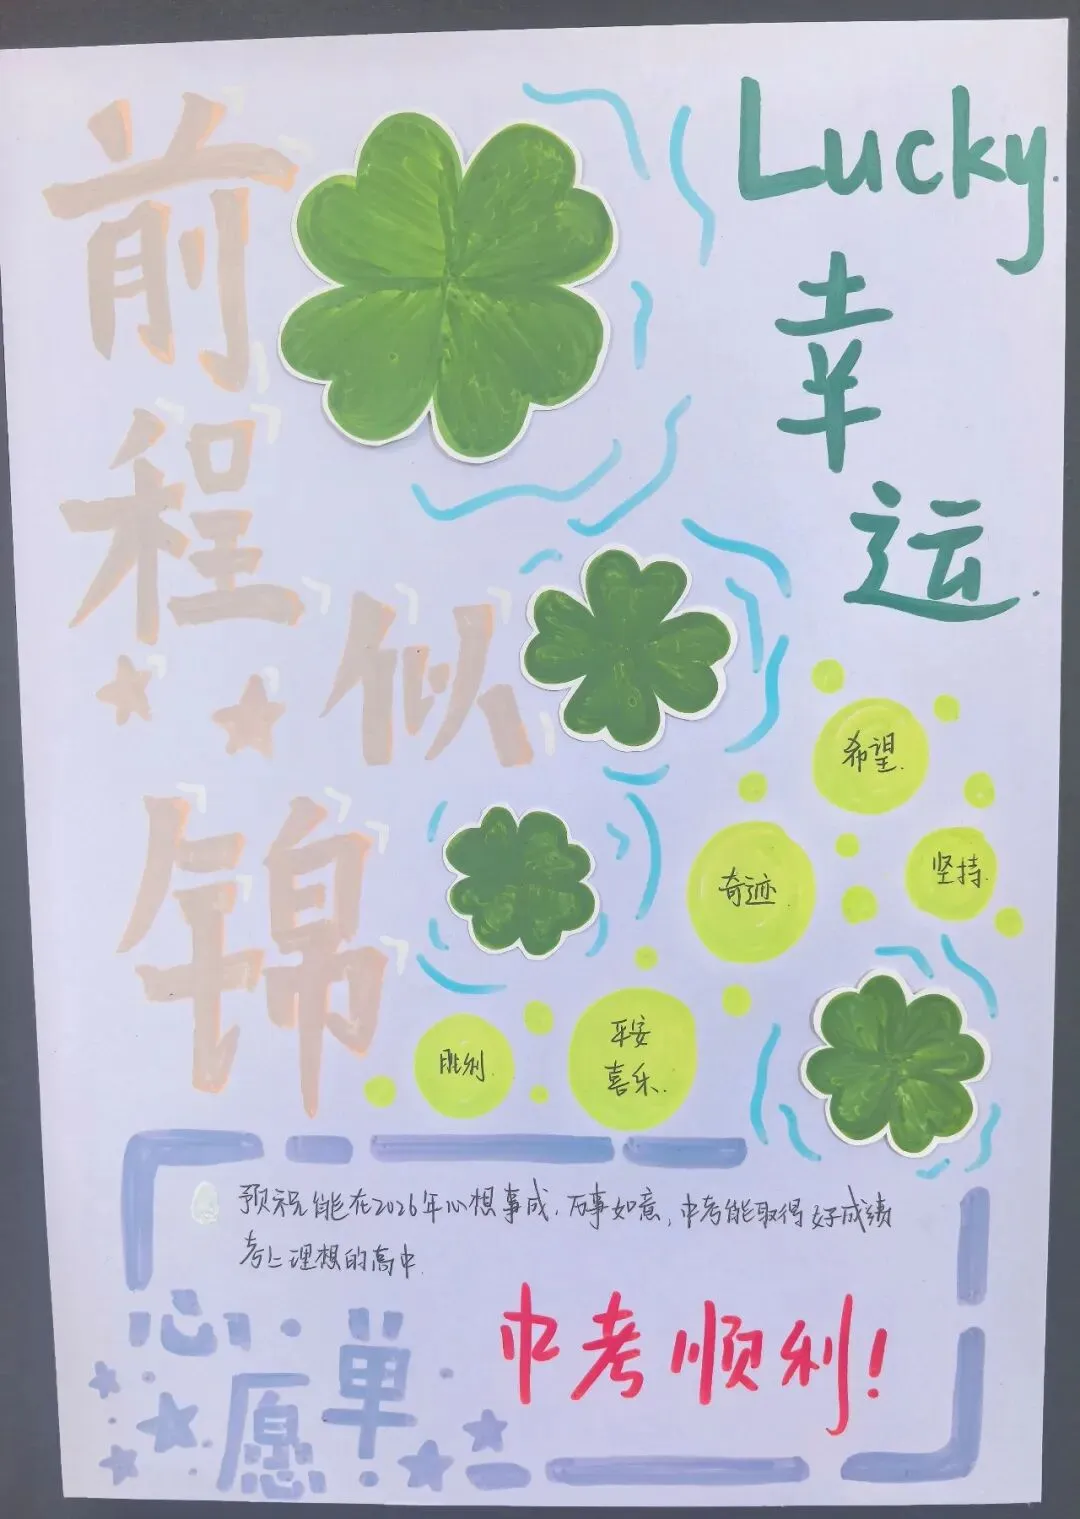 前程似锦
Lucky.
幸运.
希望.
奇迹.
坚持.
胜利.
平安
喜乐.
预祝能在2026年心想事成,万事如意,中考能取得好成绩
考上理想的高中.
中考顺利!
心愿单